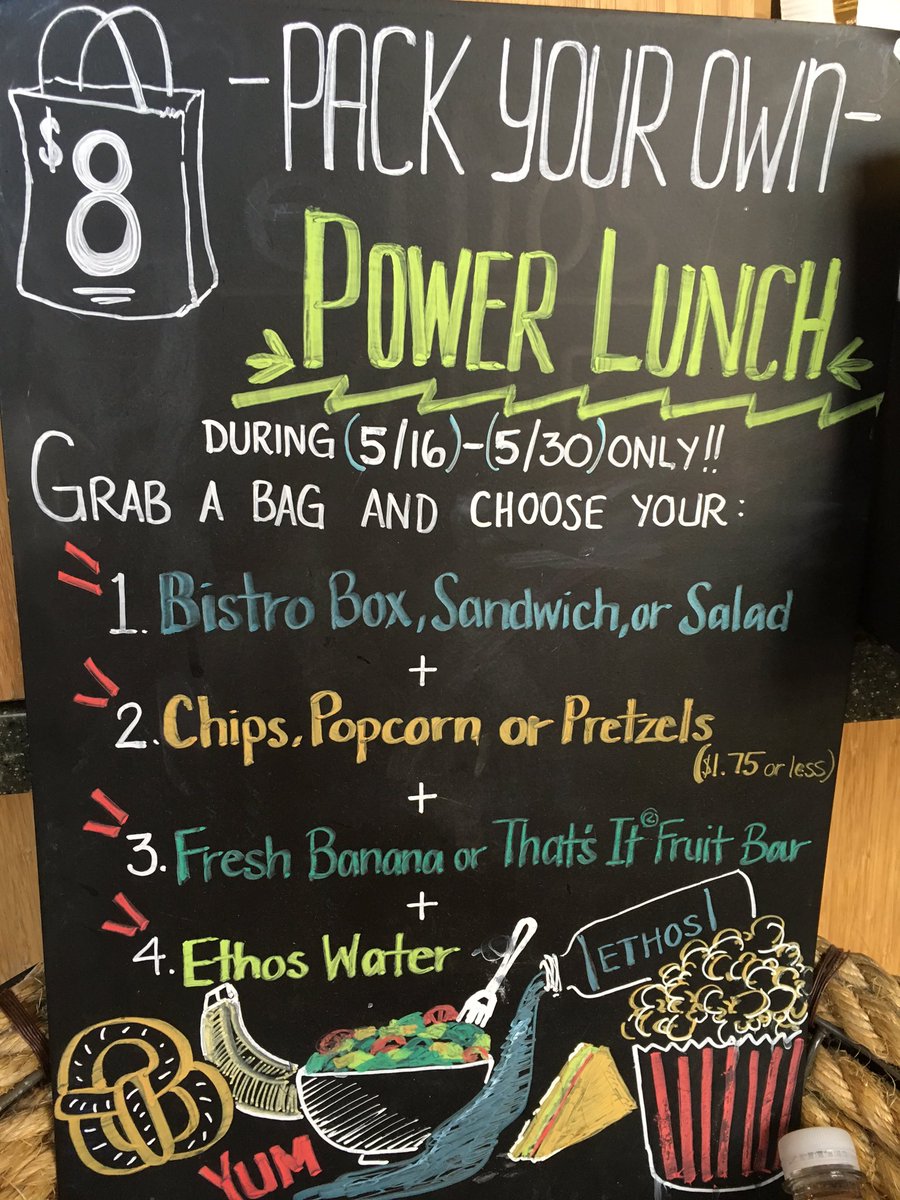 $8
-PACK YOUR OWN-
POWER LUNCH
DURING (5/16)-(5/30) ONLY!!
GRAB A BAG AND CHOOSE YOUR:
1. Bistro Box, Sandwich, or Salad
+
2. Chips, Popcorn or Pretzels
($1.75 or less)
+
3. Fresh Banana or That's It® Fruit Bar
+
4. Ethos Water
ETHOS
YUM